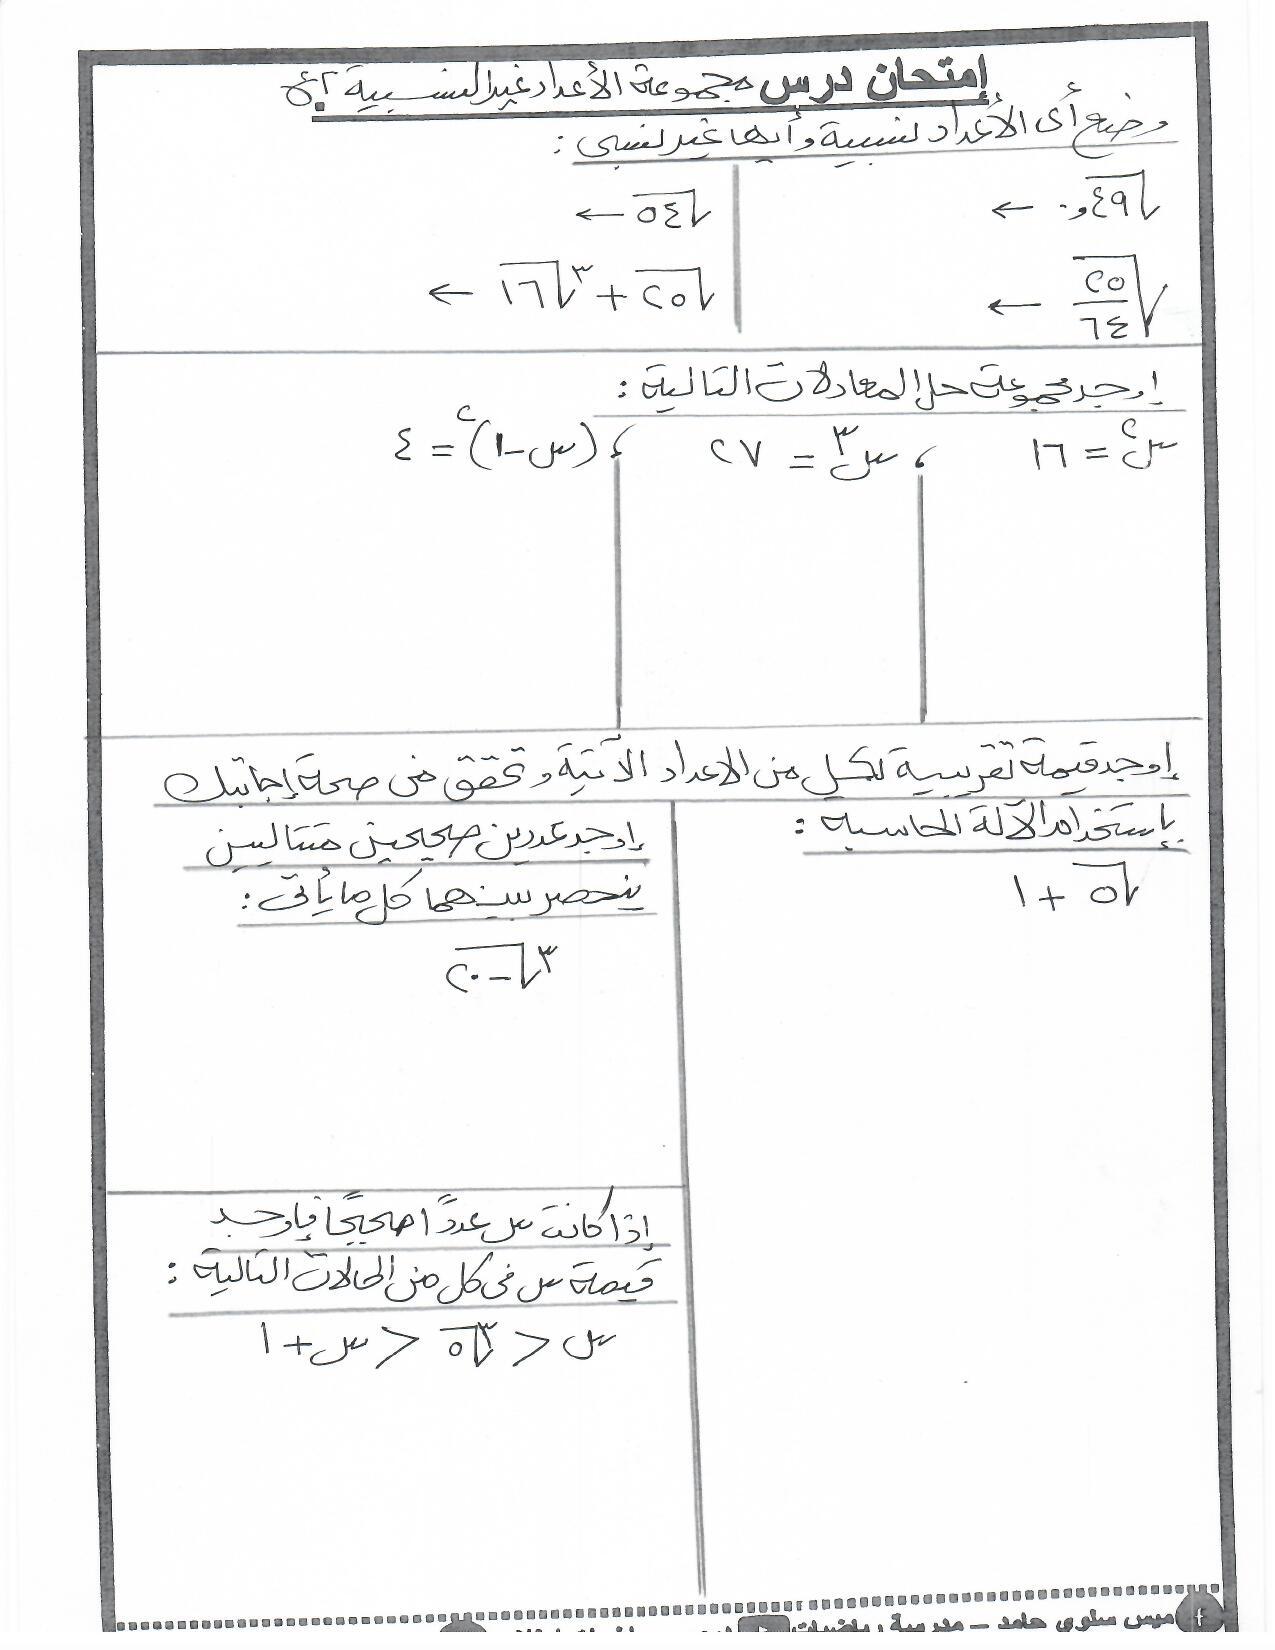 إمتحان درس مجموعة الأعداد غير النسبية
وضح أى الأعداد نسبية وأيها غير نسبى :
√٠,٤٩ ←
√٥٤ ←
√(٢٥/٦٤) ←
√٢٥ + ∛١٦ ←
إوجد مجموعة حل المعادلات التالية :
س٢ = ١٦ ، س٣ = ٢٧ ، (س-١)٢ = ٤
إوجد قيمة تقريبية لكل من الأعداد الآتية وتحقق من صحة إجابتك
بإستخدام الآلة الحاسبة :
√٥ + ١
إوجد عددين صحيحين متتاليين
ينحصر بينهما كل ما يأتى :
∛-٢٠
إذا كانت س عددًا صحيحًا فاوجد
قيمة س فى كل من الحالات التالية :
س > ∛٥ > س + ١
ميس سلوى حامد – مدرسة رياضيات